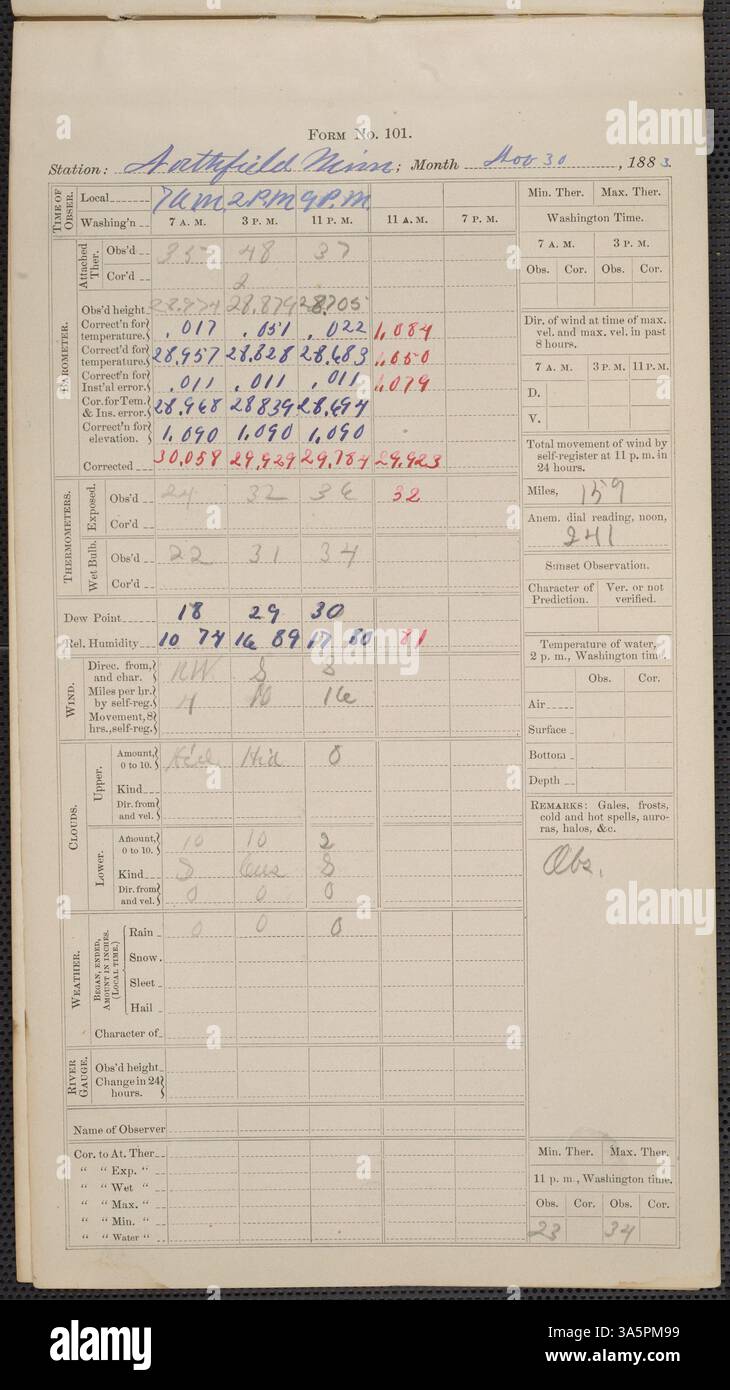 FORM NO. 101.
Station: Northfield Minn; Month Nov 30, 1883.
TIME OF OBSER. Local 7 a m 2 P.M 9 P.M. Min. Ther. Max. Ther.
Washing'n 7 A. M. 3 P. M. 11 P. M. 11 A. M. 7 P. M. Washington Time.
Attached Ther. Obs'd 35 48 37 7 A. M. 3 P. M.
Cor'd 2 Obs. Cor. Obs. Cor.
BAROMETER.
Obs'd height 28.974 28.879 28.705
Correct'n for temperature. .017 .051 .022 1,084
Correct'd for temperature. 28,957 28.828 28,683 1,050
Correct'n for Inst'al error. .011 .011 .011 1,079
Cor. for Tem. & Ins. error. 28,968 28 839 28,694
Correct'n for elevation. 1,090 1,090 1,090
Corrected 30,058 29,929 29,784 29,923
Dir. of wind at time of max. vel. and max. vel. in past 8 hours.
7 A. M. 3 P. M. 11 P. M.
D.
V.
Total movement of wind by self-register at 11 p. m. in 24 hours.
Miles, 159
Anem. dial reading, noon,
241
THERMOMETERS.
Exposed. Obs'd 24 32 36 32
Cor'd
Wet Bulb. Obs'd 22 31 34
Cor'd
Sunset Observation.
Character of Prediction. Ver. or not verified.
Dew Point 18 29 30
Rel. Humidity 10 74 16 89 17 80 81
Temperature of water, 2 p. m., Washington time.
Obs. Cor.
Air
Surface
Bottom
Depth
WIND.
Direc. from, and char. NW. S S
Miles per hr. by self-reg. 4 10 16
Movement, 8 hrs., self-reg.
CLOUDS.
Upper. Amount, 0 to 10. Hid Hid 0
Kind
Dir. from and vel.
Lower. Amount, 0 to 10. 10 10 2
Kind S Cus S
Dir. from and vel. 0 0 0
REMARKS: Gales, frosts, cold and hot spells, auroras, halos, &c.
Obs.
WEATHER.
BEGAN, ENDED, AMOUNT IN INCHES. (LOCAL TIME.)
Rain 0 0 0
Snow
Sleet
Hail
Character of
RIVER GAUGE.
Obs'd height
Change in 24 hours.
Name of Observer
Cor. to At. Ther.
" " Exp. "
" " Wet "
" " Max. "
" " Min. "
" " Water "
Min. Ther. Max. Ther.
11 p. m., Washington time.
Obs. Cor. Obs. Cor.
23 34
alamy
Image ID: 3A5PM99
www.alamy.com